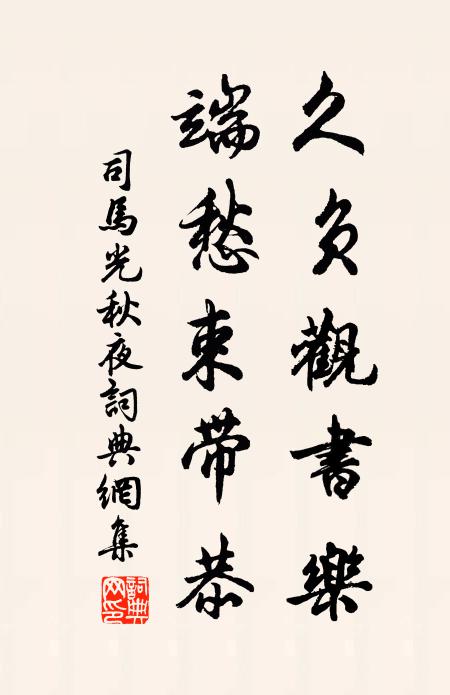 久負觀書樂
端愁束帶恭
司馬光秋夜詞典網集
詞典网印